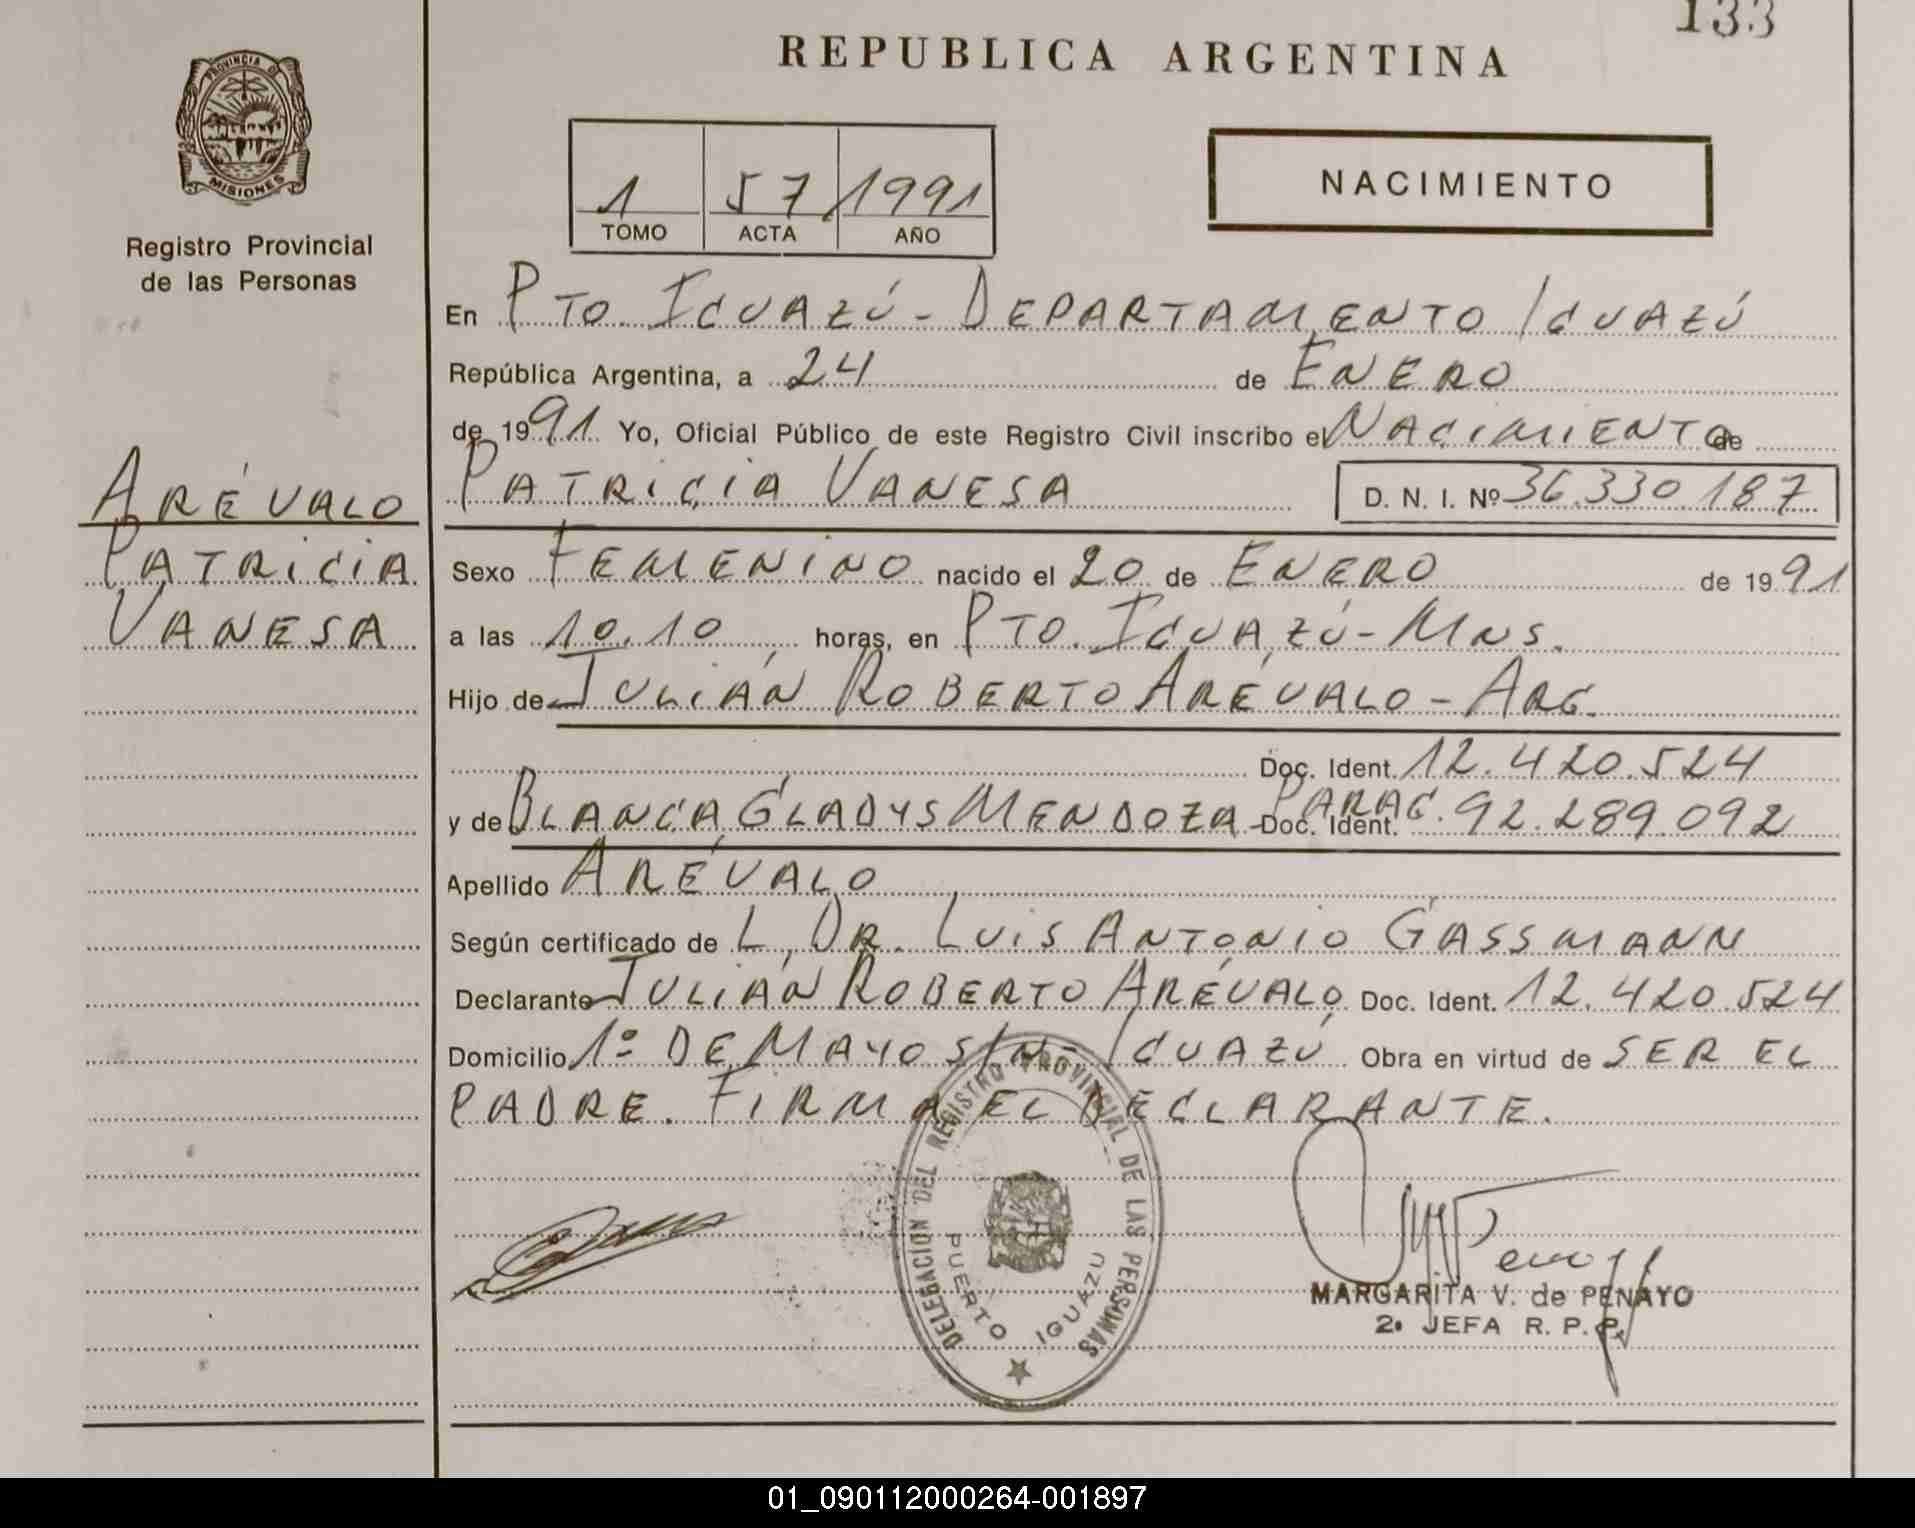 133
REPUBLICA ARGENTINA
PROVINCIA DE
MISIONES
Registro Provincial
de las Personas
1 57 1991
TOMO ACTA AÑO
NACIMIENTO
En PTO. IGUAZÚ - DEPARTAMENTO IGUAZÚ
República Argentina, a 24 de ENERO
de 1991 Yo, Oficial Público de este Registro Civil inscribo el NACIMIENTO de
PATRICIA VANESA D. N. I. Nº 36.330.187
ARÉVALO
PATRICIA
VANESA
Sexo FEMENINO nacido el 20 de ENERO de 1991
a las 10.10 horas, en PTO. IGUAZÚ - MNS.
Hijo de JULIÁN ROBERTO ARÉVALO - ARG.
Doc. Ident. 12.420.524
y de BLANCA GLADYS MENDOZA - PARAG. Doc. Ident. 92.289.092
Apellido ARÉVALO
Según certificado de L. DR. LUIS ANTONIO GASSMANN
Declarante JULIÁN ROBERTO ARÉVALO Doc. Ident. 12.420.524
Domicilio 1º DE MAYO S/N - IGUAZÚ Obra en virtud de SER EL
PADRE. FIRMA EL DECLARANTE.
DELEGACION DEL REGISTRO PROVINCIAL DE LAS PERSONAS
PUERTO IGUAZU
MARGARITA V. de PENAYO
2ª JEFA R. P. P.
01_090112000264-001897